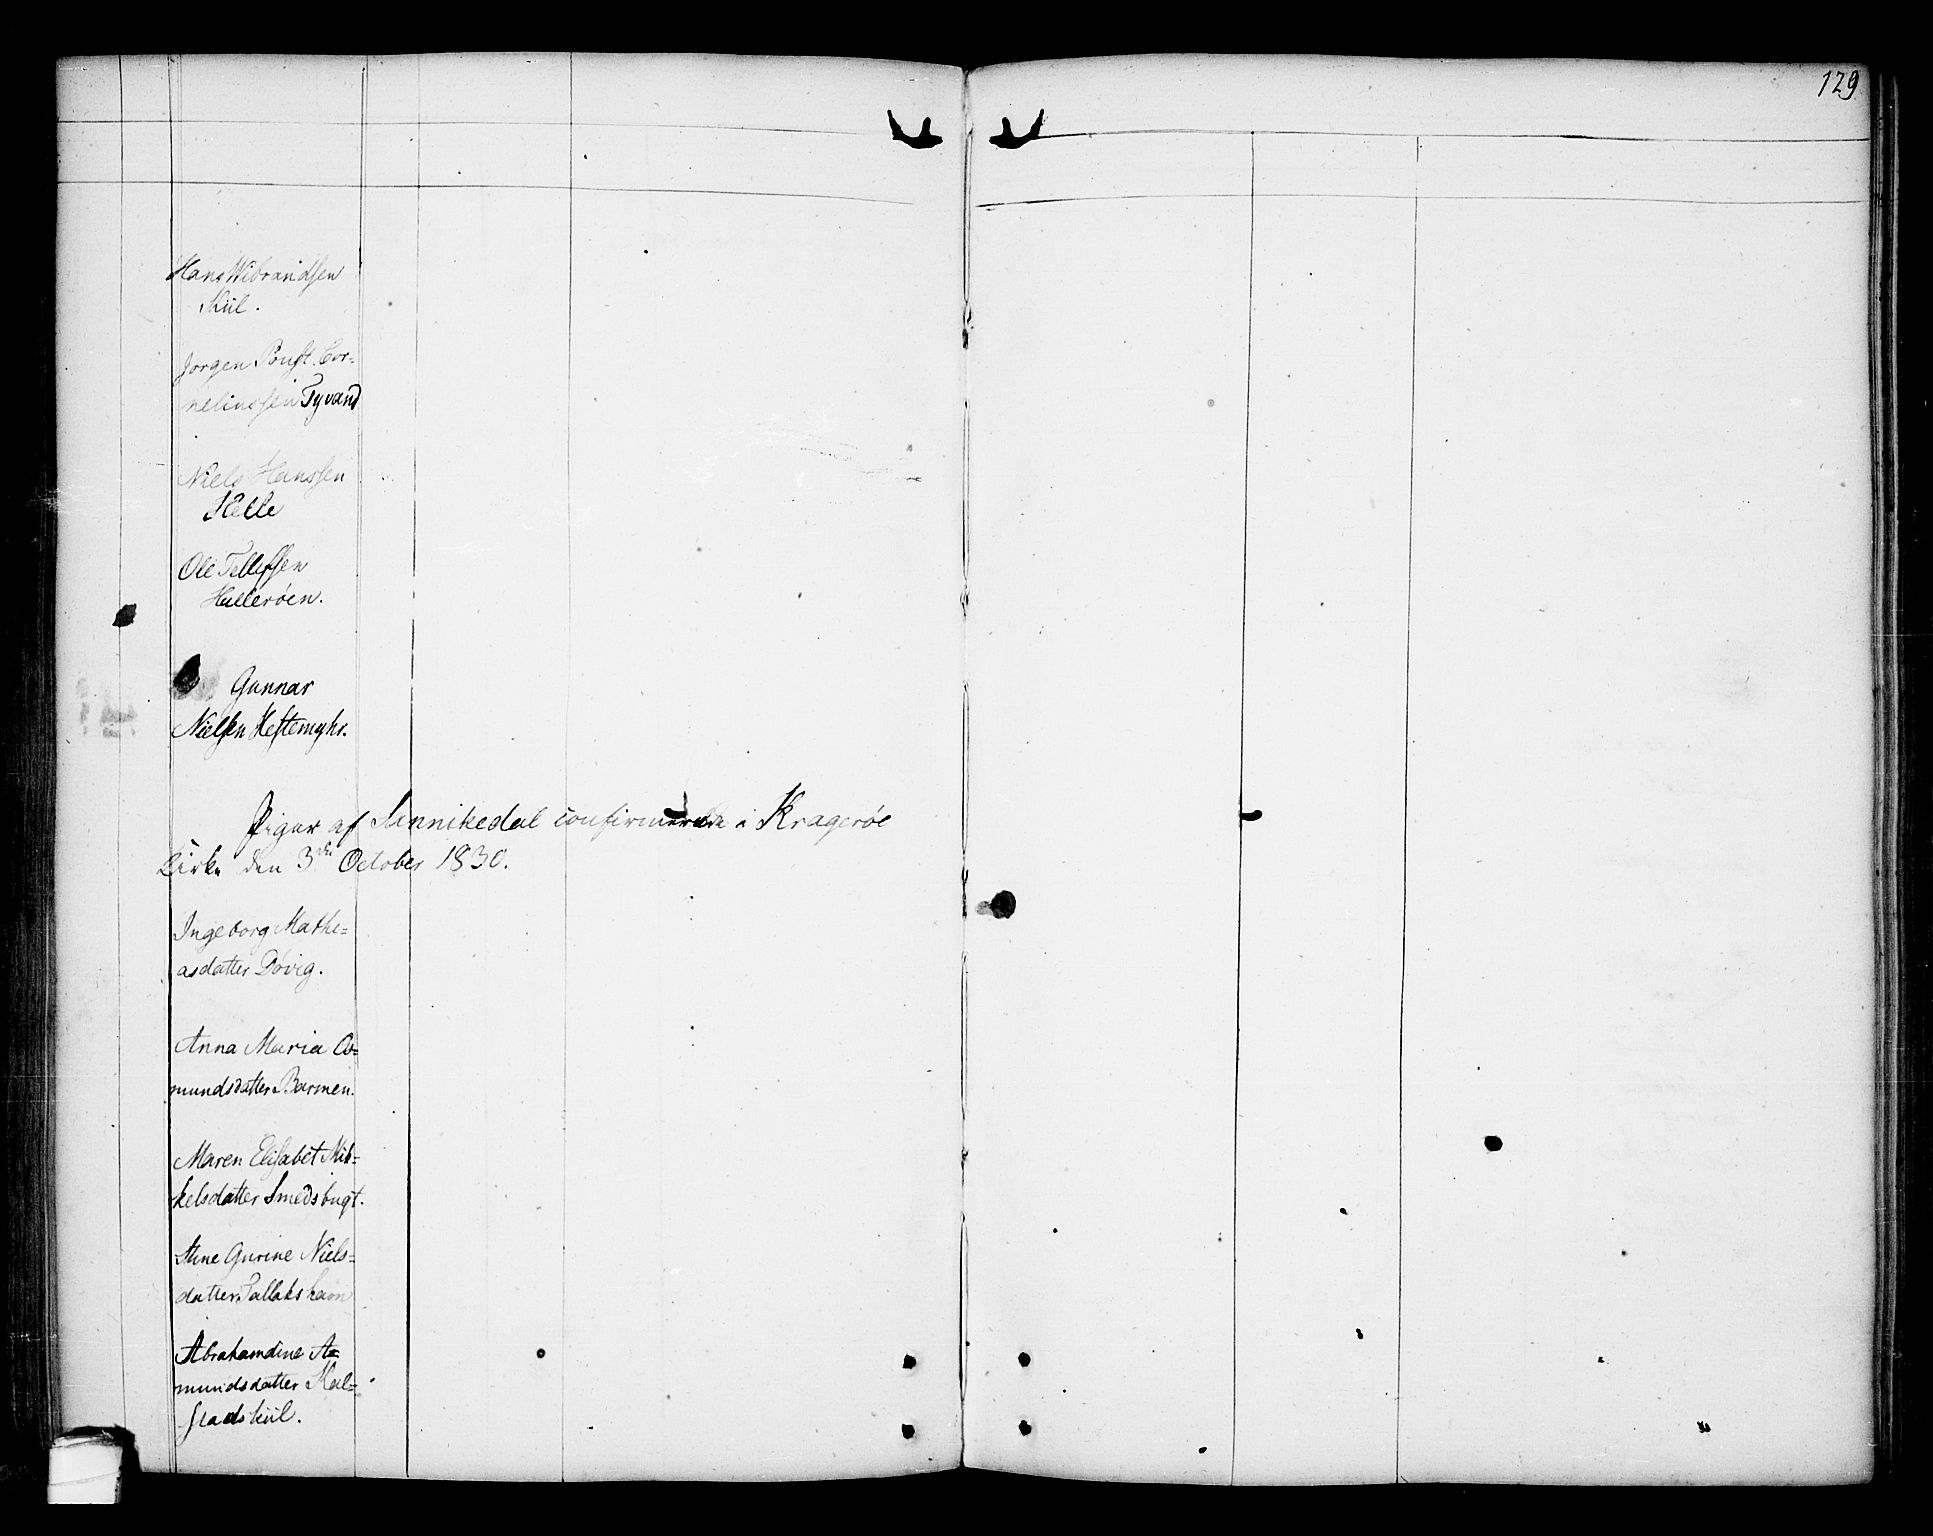 129
Hans Wibrandsen
Kiil.
Jørgen Cor=
neliussen Tyvand
Niels Hanssen
Helle
Ole Tellefsen
Hullerøen.
Gunnar
Nielsen Heftemyhr.
Piger af Sannikedal confirmerede i Kragerøe
Kirke den 3die October 1830.
Ingeborg Mathe=
asdatter Dovig.
Anna Maria As=
mundsdatter Barmen.
Maren Elisabet Mik=
kelsdatter Smedsbugt.
Stine Gurine Niels=
datter Tallakshavn
Abrahamdine A=
mundsdatter Kal=
stadskiil.